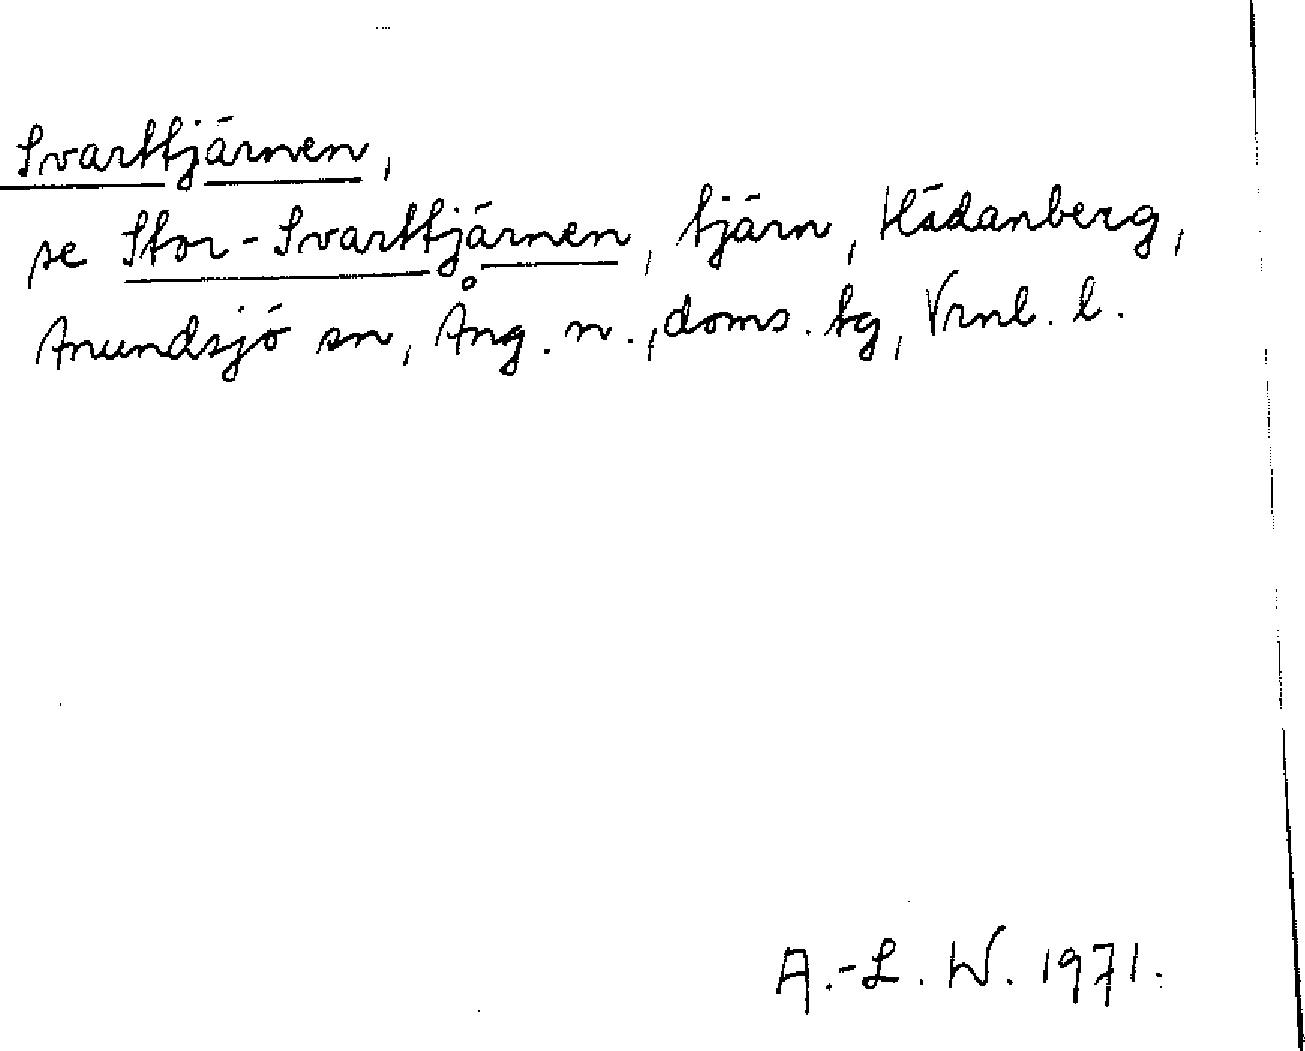 Svarttjärnen,
se Stor-Svarttjärnen, tjärn, Hädanberg,
Anundsjö sn, Ång. n., doms. tg, Vrnl. l.
A.-L. W. 1971.